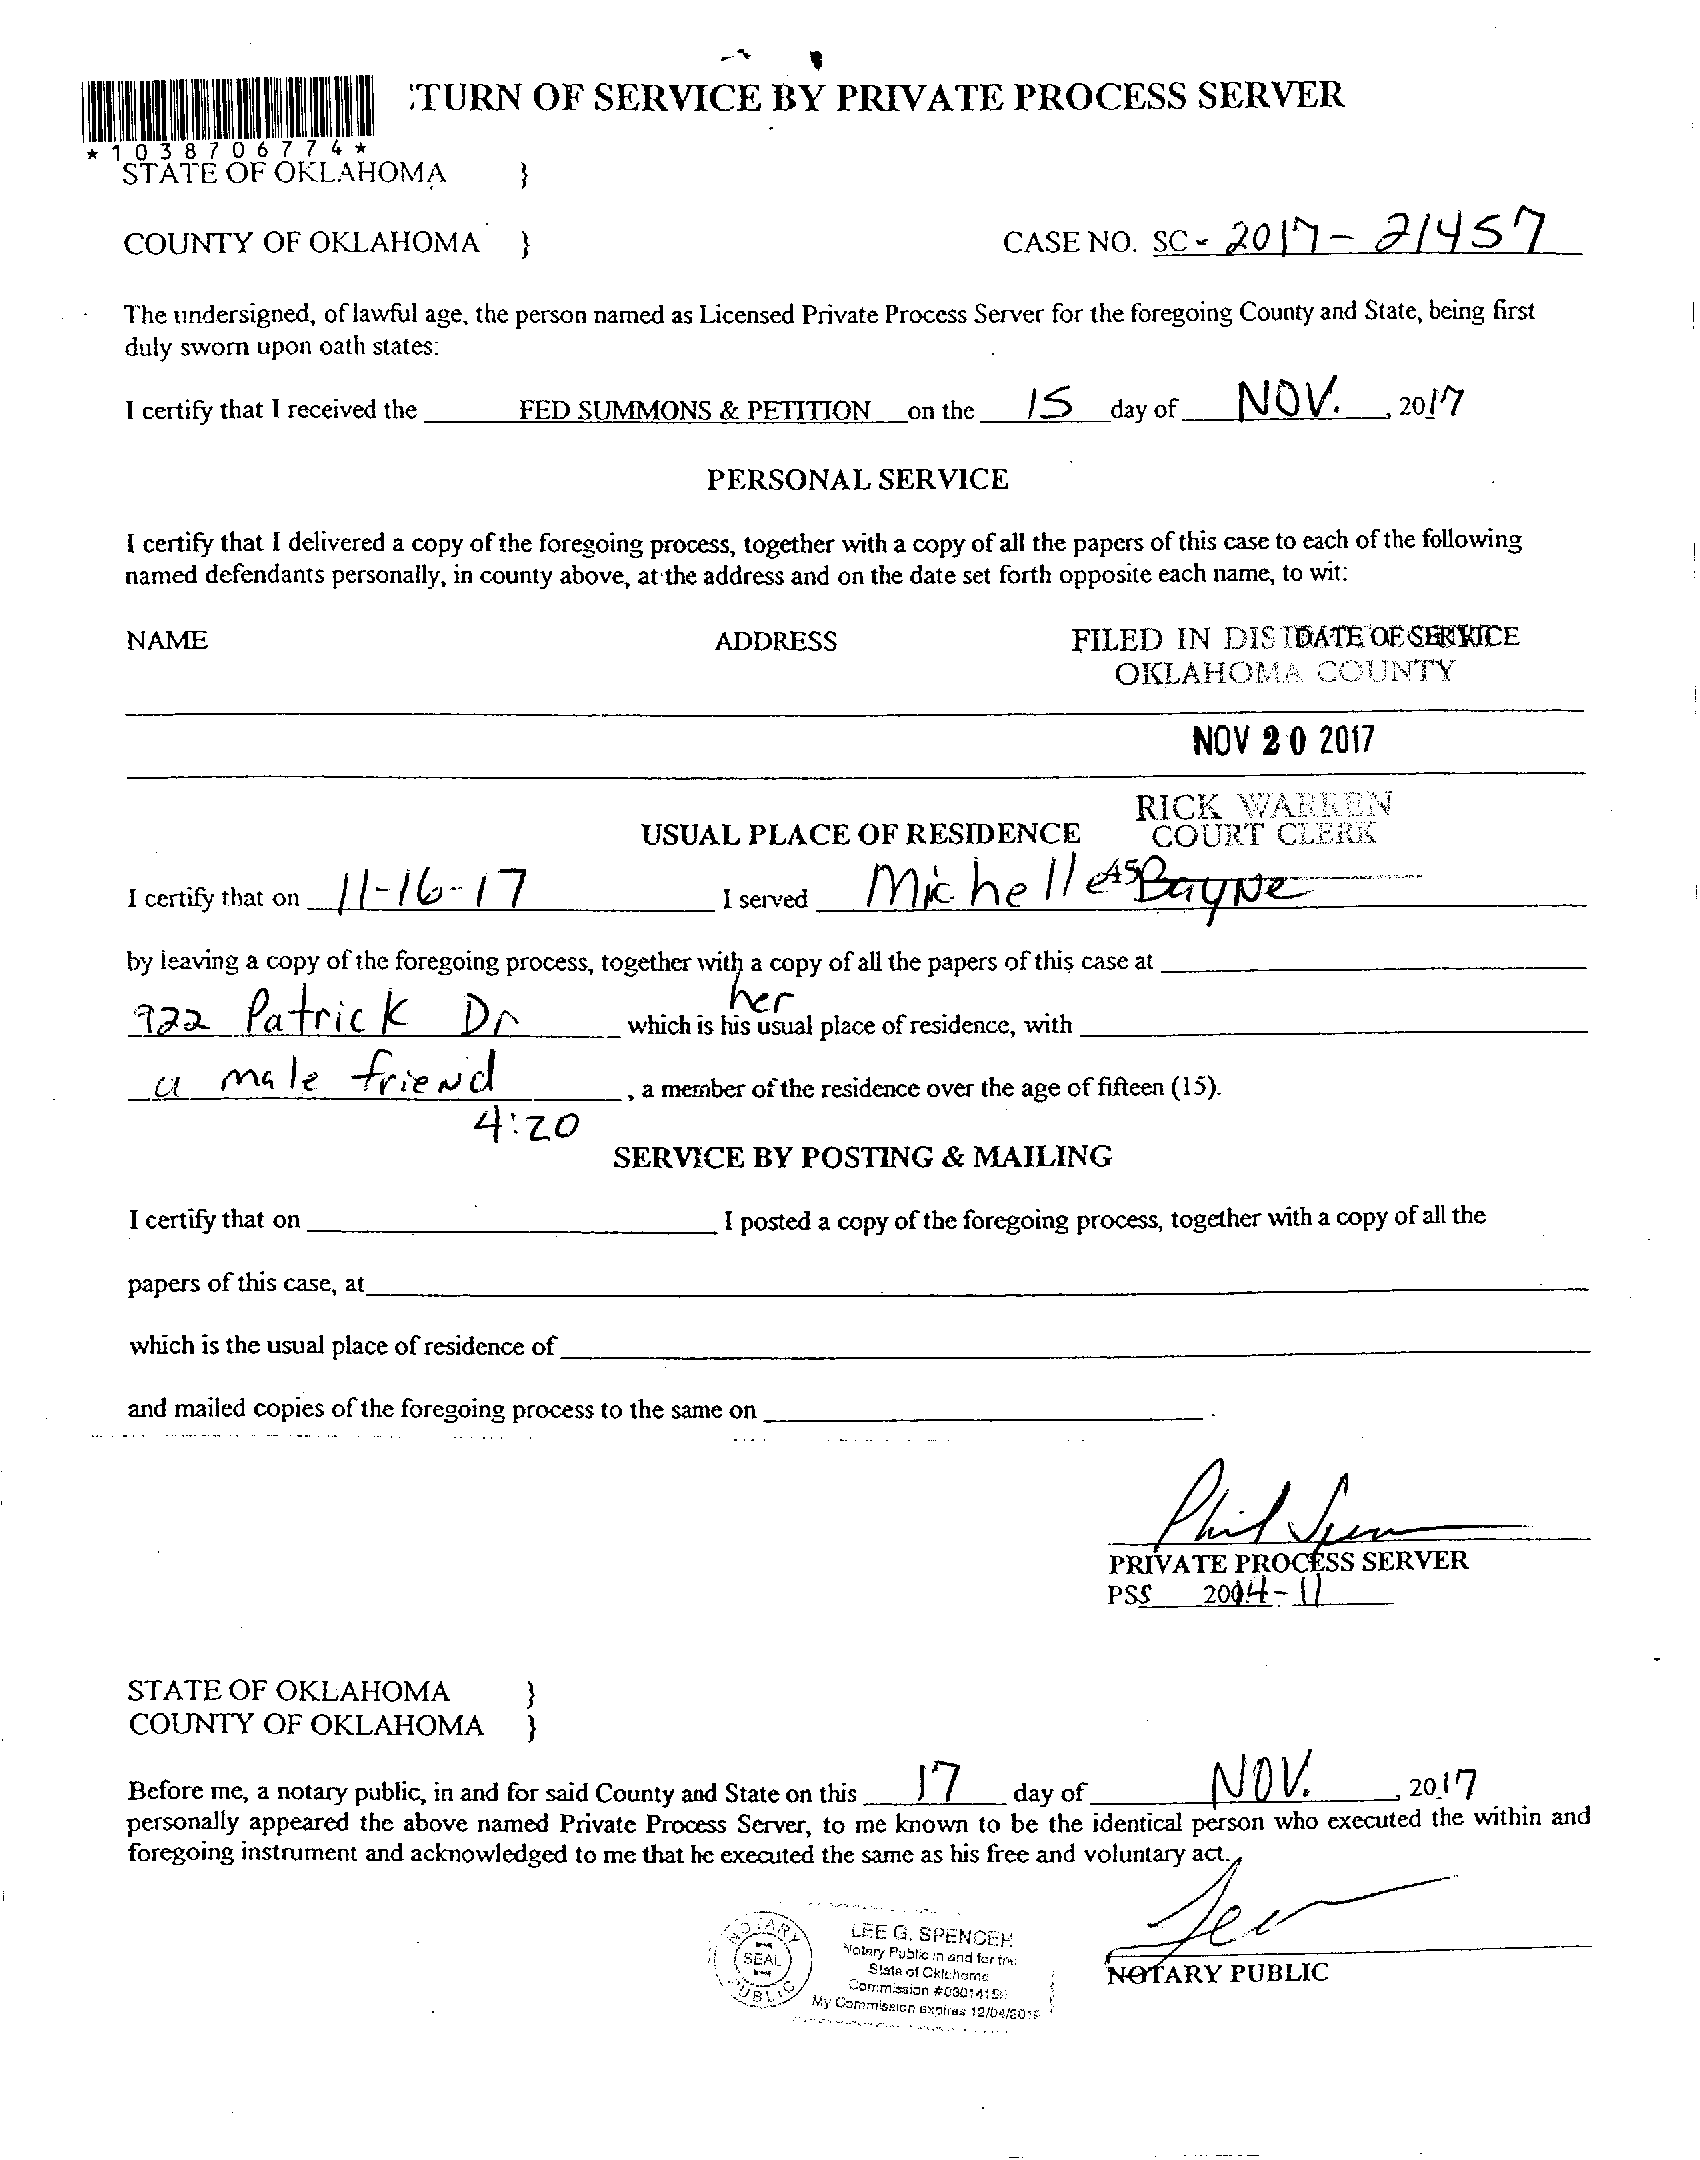 :TURN OF SERVICE BY PRIVATE PROCESS SERVER
*1038706774*
STATE OF OKLAHOMA }
COUNTY OF OKLAHOMA } CASE NO. SC - 2017 - 21457
The undersigned, of lawful age, the person named as Licensed Private Process Server for the foregoing County and State, being first
duly sworn upon oath states:
I certify that I received the FED SUMMONS & PETITION on the 15 day of NOV. , 2017
PERSONAL SERVICE
I certify that I delivered a copy of the foregoing process, together with a copy of all the papers of this case to each of the following
named defendants personally, in county above, at the address and on the date set forth opposite each name, to wit:
NAME ADDRESS DATE OF SERVICE
FILED IN DIST
OKLAHOMA COUNTY
NOV 20 2017
RICK WARREN
COURT CLERK
USUAL PLACE OF RESIDENCE
I certify that on 11-16-17 I served Michelle Bayne
by leaving a copy of the foregoing process, together with a copy of all the papers of this case at
her
922 Patrick Dr which is his usual place of residence, with
a male friend , a member of the residence over the age of fifteen (15).
4:20
SERVICE BY POSTING & MAILING
I certify that on I posted a copy of the foregoing process, together with a copy of all the
papers of this case, at
which is the usual place of residence of
and mailed copies of the foregoing process to the same on .
Phil
PRIVATE PROCESS SERVER
PSS 2004-11
STATE OF OKLAHOMA }
COUNTY OF OKLAHOMA }
Before me, a notary public, in and for said County and State on this 17 day of NOV. , 2017
personally appeared the above named Private Process Server, to me known to be the identical person who executed the within and
foregoing instrument and acknowledged to me that he executed the same as his free and voluntary act.
NOTARY PUBLIC
NOTARY
SEAL
PUBLIC
LEE G. SPENCER
Notary Public in and for the
State of Oklahoma
Commission
My Commission expires